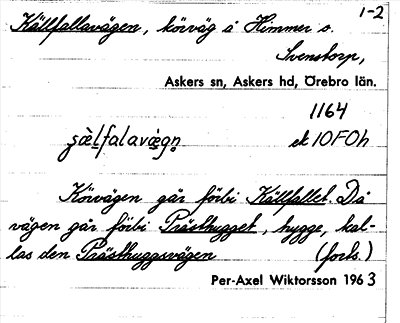 1-2
Källfallavägen, körväg å Himmer o.
Svenstorp,
Askers sn, Askers hd, Örebro län.
1164
ek 10F0h
Körvägen går förbi Källfallet. Då
vägen går förbi Prästhugget, hygge, kal-
las den Prästhuggsvägen (forts.)
Per-Axel Wiktorsson 1963